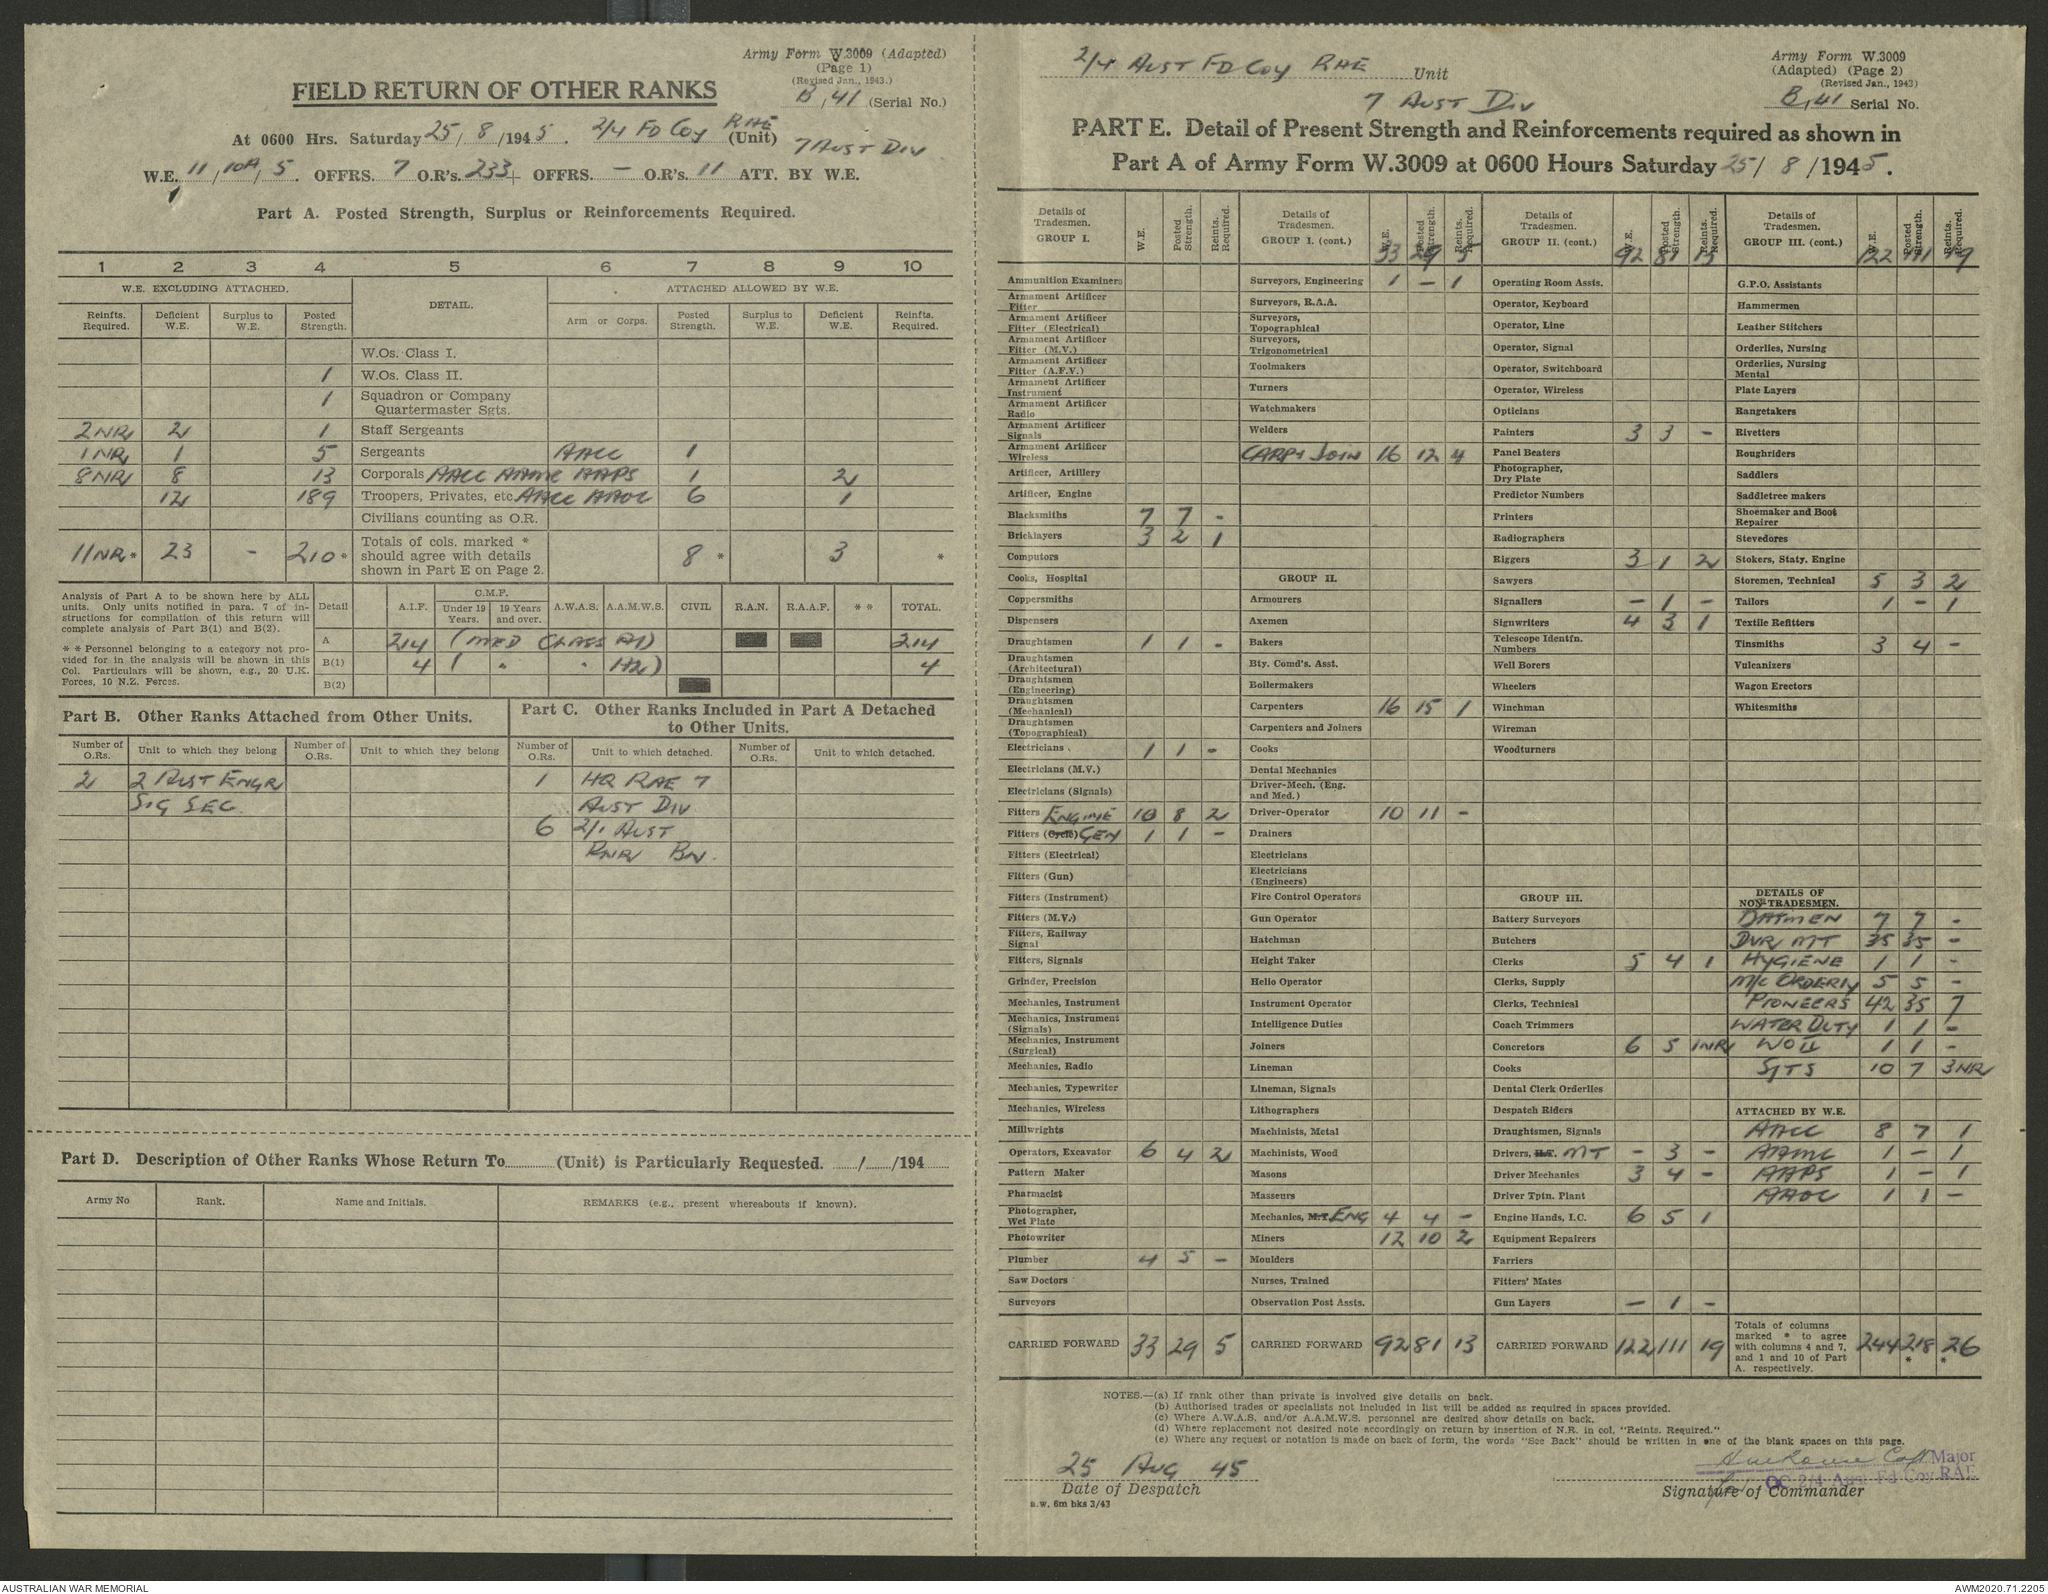 Army Form W.3009 (Adapted)
(Page 1)
(Revised Jan., 1943.)
B, 41 (Serial No.)
FIELD RETURN OF OTHER RANKS
At 0600 Hrs. Saturday 25/8/1945. 2/4 FD COY RAE (Unit) 7 AUST DIV
W.E. 11/10A/5. OFFRS. 7 O.R's. 233+ OFFRS. — O.R's. 11 ATT. BY W.E.
1
Part A. Posted Strength, Surplus or Reinforcements Required.
1 2 3 4 5 6 7 8 9 10
W.E. EXCLUDING ATTACHED. DETAIL. ATTACHED ALLOWED BY W.E.
Reinfts. Required. Deficient W.E. Surplus to W.E. Posted Strength. Arm or Corps. Posted Strength. Surplus to W.E. Deficient W.E. Reinfts. Required.
W.Os. Class I.
1 W.Os. Class II.
1 Squadron or Company Quartermaster Sgts.
2NR 2 1 Staff Sergeants
1NR 1 5 Sergeants AACC 1
8NR 8 13 Corporals AACC AAMC AAPS 1 2
12 189 Troopers, Privates, etc AACC AAOC 6 1
Civilians counting as O.R.
11NR* 23 - 210* Totals of cols. marked * should agree with details shown in Part E on Page 2. 8 * 3 *
Analysis of Part A to be shown here by ALL units. Only units notified in para. 7 of instructions for compilation of this return will complete analysis of Part B(1) and B(2).
* * Personnel belonging to a category not provided for in the analysis will be shown in this Col. Particulars will be shown, e.g., 20 U.K. Forces, 10 N.Z. Forces.
Detail A.I.F. C.M.F. Under 19 Years. 19 Years and over. A.W.A.S. A.A.M.W.S. CIVIL R.A.N. R.A.A.F. * * TOTAL.
A 214 (MED CLASS A1) 214
B(1) 4 ( " " A2) 4
B(2)
Part B. Other Ranks Attached from Other Units.
Number of O.Rs. Unit to which they belong Number of O.Rs. Unit to which they belong
2 2 AUST ENGR
SIG SEC.
Part C. Other Ranks Included in Part A Detached to Other Units.
Number of O.Rs. Unit to which detached. Number of O.Rs. Unit to which detached.
1 HQ RAE 7
AUST DIV
6 2/1 AUST
PNR BN.
Part D. Description of Other Ranks Whose Return To (Unit) is Particularly Requested. / /194
Army No Rank. Name and Initials. REMARKS (e.g., present whereabouts if known).
2/4 AUST FD COY RAE Unit
7 AUST DIV
Army Form W.3009
(Adapted) (Page 2)
(Revised Jan., 1943)
B, 41 Serial No.
PART E. Detail of Present Strength and Reinforcements required as shown in
Part A of Army Form W.3009 at 0600 Hours Saturday 25/8/1945.
Details of Tradesmen. GROUP I. W.E. Posted Strength. Reints. Required.
Ammunition Examiners
Armament Artificer Fitter
Armament Artificer Fitter (Electrical)
Armament Artificer Fitter (M.V.)
Armament Artificer Fitter (A.F.V.)
Armament Artificer Instrument
Armament Artificer Radio
Armament Artificer Signals
Armament Artificer Wireless
Artificer, Artillery
Artificer, Engine
Blacksmiths 7 7 -
Bricklayers 3 2 1
Computors
Cooks, Hospital
Coppersmiths
Dispensers
Draughtsmen 1 1 -
Draughtsmen (Architectural)
Draughtsmen (Engineering)
Draughtsmen (Mechanical)
Draughtsmen (Topographical)
Electricians 1 1 -
Electricians (M.V.)
Electricians (Signals)
Fitters ENGINE 10 8 2
Fitters (Cycle) GEN 1 1 -
Fitters (Electrical)
Fitters (Gun)
Fitters (Instrument)
Fitters (M.V.)
Fitters, Railway Signal
Fitters, Signals
Grinder, Precision
Mechanics, Instrument
Mechanics, Instrument (Signals)
Mechanics, Instrument (Surgical)
Mechanics, Radio
Mechanics, Typewriter
Mechanics, Wireless
Millwrights
Operators, Excavator 6 4 2
Pattern Maker
Pharmacist
Photographer, Wet Plate
Photowriter
Plumber 4 5 -
Saw Doctors
Surveyors
CARRIED FORWARD 33 29 5
Details of Tradesmen. GROUP I. (cont.) W.E. Posted Strength. Reints. Required. 33 29 5
Surveyors, Engineering 1 - 1
Surveyors, R.A.A.
Surveyors, Topographical
Surveyors, Trigonometrical
Toolmakers
Turners
Watchmakers
Welders
CARP & JOIN 16 12 4
GROUP II.
Armourers
Axemen
Bakers
Bty. Comd's. Asst.
Boilermakers
Carpenters 16 15 1
Carpenters and Joiners
Cooks
Dental Mechanics
Driver-Mech. (Eng. and Med.)
Driver-Operator 10 11 -
Drainers
Electricians
Electricians (Engineers)
Fire Control Operators
Gun Operator
Hatchman
Height Taker
Helio Operator
Instrument Operator
Intelligence Duties
Joiners
Lineman
Lineman, Signals
Lithographers
Machinists, Metal
Machinists, Wood
Masons
Masseurs
Mechanics, M.T. ENG 4 4 -
Miners 12 10 2
Moulders
Nurses, Trained
Observation Post Assts.
CARRIED FORWARD 92 81 13
Details of Tradesmen. GROUP II. (cont.) W.E. Posted Strength. Reints. Required. 92 81 13
Operating Room Assis.
Operator, Keyboard
Operator, Line
Operator, Signal
Operator, Switchboard
Operator, Wireless
Opticians
Painters 3 3 -
Panel Beaters
Photographer, Dry Plate
Predictor Numbers
Printers
Radiographers
Riggers 3 1 2
Sawyers
Signallers - 1 -
Signwriters 4 3 1
Telescope Identfn. Numbers
Well Borers
Wheelers
Winchman
Wireman
Woodturners
GROUP III.
Battery Surveyors
Butchers
Clerks 5 4 1
Clerks, Supply
Clerks, Technical
Coach Trimmers
Concretors 6 5 1NR
Cooks
Dental Clerk Orderlies
Despatch Riders
Draughtsmen, Signals
Drivers, H.T. MT - 3 -
Driver Mechanics 3 4 -
Driver Tptn. Plant
Engine Hands, I.C. 6 5 1
Equipment Repairers
Farriers
Fitters' Mates
Gun Layers - 1 -
CARRIED FORWARD 122 111 19
Details of Tradesmen. GROUP III. (cont.) W.E. Posted Strength. Reints. Required. 122 111 19
G.P.O. Assistants
Hammermen
Leather Stitchers
Orderlies, Nursing
Orderlies, Nursing Mental
Plate Layers
Rangetakers
Rivetters
Roughriders
Saddlers
Saddletree makers
Shoemaker and Boot Repairer
Stevedores
Stokers, Staty. Engine
Storemen, Technical 5 3 2
Tailors 1 - 1
Textile Refitters
Tinsmiths 3 4 -
Vulcanizers
Wagon Erectors
Whitesmiths
DETAILS OF NON-TRADESMEN.
BATMEN 7 7 -
DVR MT 35 35 -
HYGIENE 1 1 -
M/C ORDERLY 5 5 -
PIONEERS 42 35 7
WATER DUTY 1 1 -
WO II 1 1 -
SJTS 10 7 3NR
ATTACHED BY W.E.
AACC 8 7 1
AAMC 1 - 1
AAPS 1 - 1
AAOC 1 1 -
Totals of columns marked * to agree with columns 4 and 7, and 1 and 10 of Part A. respectively. 244 218 * 26 *
NOTES.—(a) If rank other than private is involved give details on back.
(b) Authorised trades or specialists not included in list will be added as required in spaces provided.
(c) Where A.W.A.S. and/or A.A.M.W.S. personnel are desired show details on back.
(d) Where replacement not desired note accordingly on return by insertion of N.R. in col. "Reints. Required."
(e) Where any request or notation is made on back of form, the words "See Back" should be written in one of the blank spaces on this page.
25 AUG 45
Date of Despatch
Capt Major
OC 2/4 Aust Fd Coy RAE
Signature of Commander
s.w. 6m bks 3/43
AUSTRALIAN WAR MEMORIAL
AWM2020.71.2205